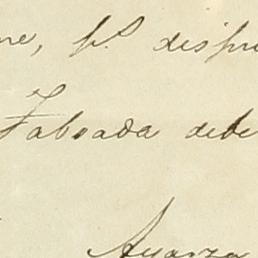 me, pº dispu
Taboada debe
Ayarza